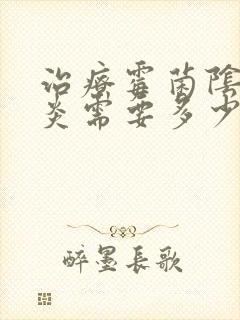 治療霉菌陰
炎需要多少
醉墨長歌